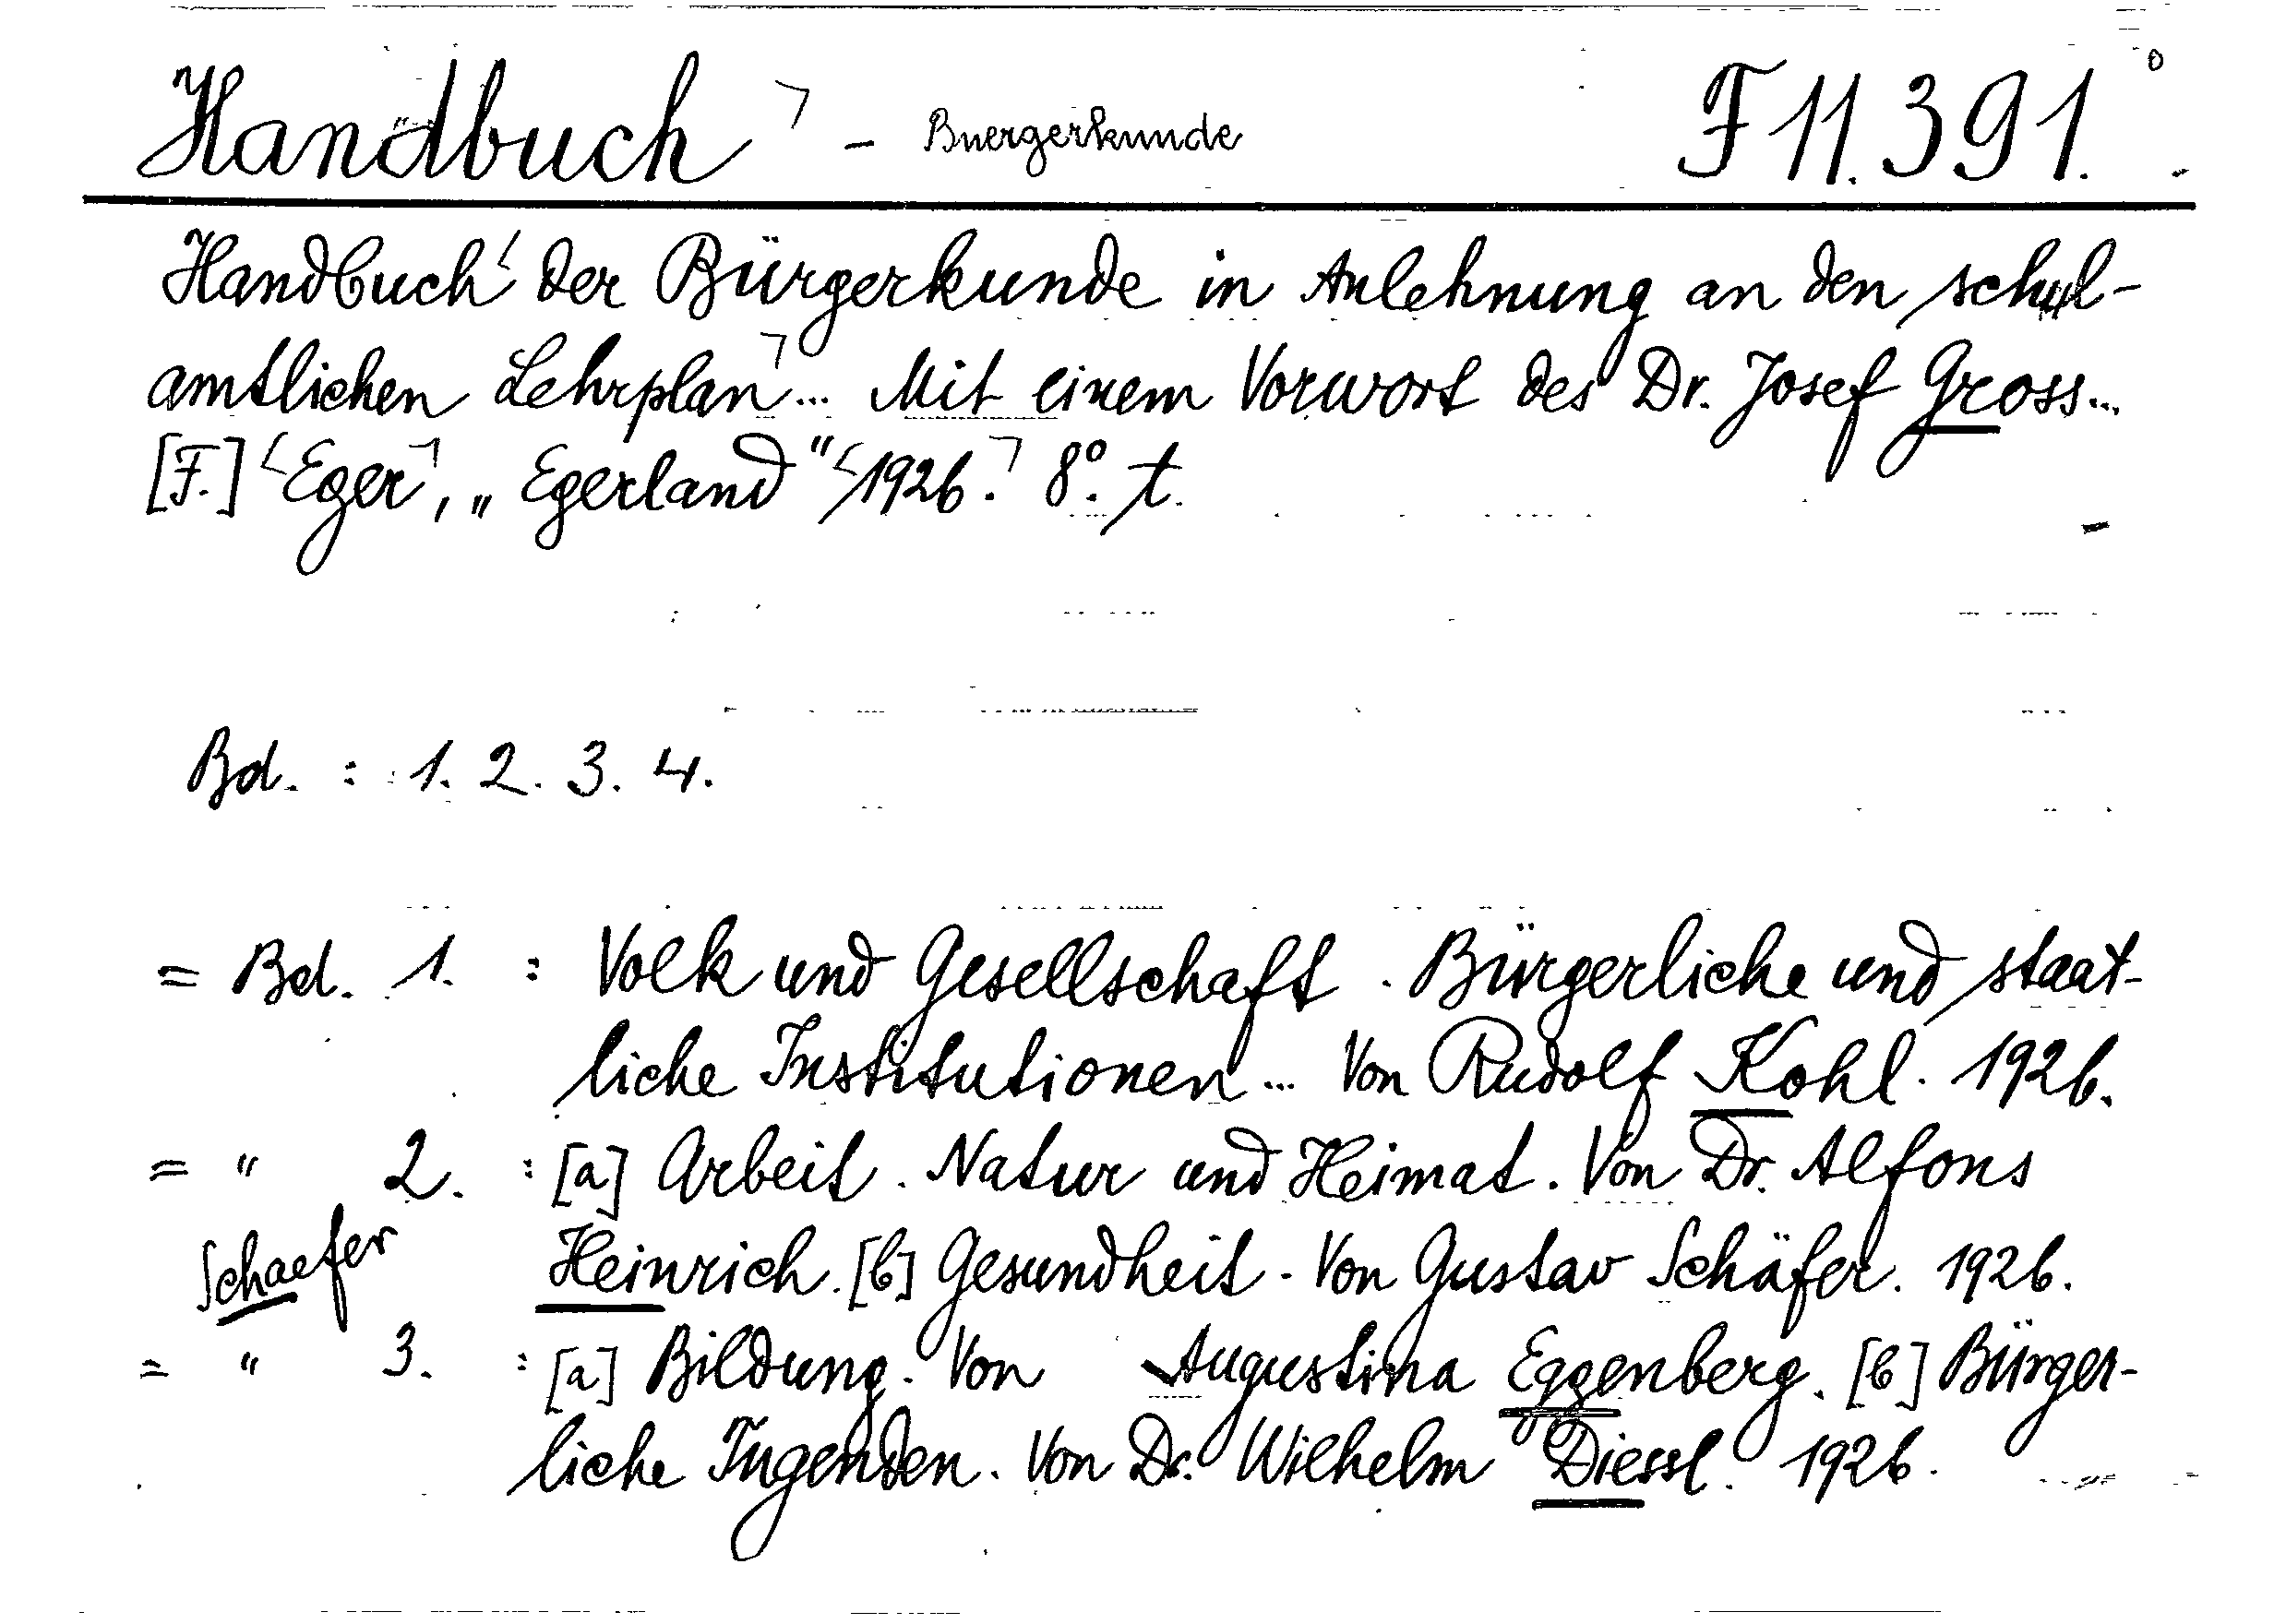 Handbuch ⌝ - Buergerkunde F 11.391.
Handbuch der Bürgerkunde in Anlehnung an den schul-
amtlichen Lehrplan ... Mit einem Vorwort des Dr. Josef Gross...
[F.] Eger, „Egerland“ 1926. 8°. t.
Bd. : 1. 2. 3. 4.
= Bd. 1. : Volk und Gesellschaft. Bürgerliche und staat-
liche Institutionen... Von Rudolf Kohl. 1926.
= " 2. : [a] Arbeit. Natur und Heimat. Von Dr. Alfons
Schaefer Heinrich. [b] Gesundheit. Von Gustav Schäfer. 1926.
= " 3. : [a] Bildung. Von Augustina Eggenberg. [b] Bürger-
liche Tugenden. Von Dr. Wilhelm Diessl. 1926.